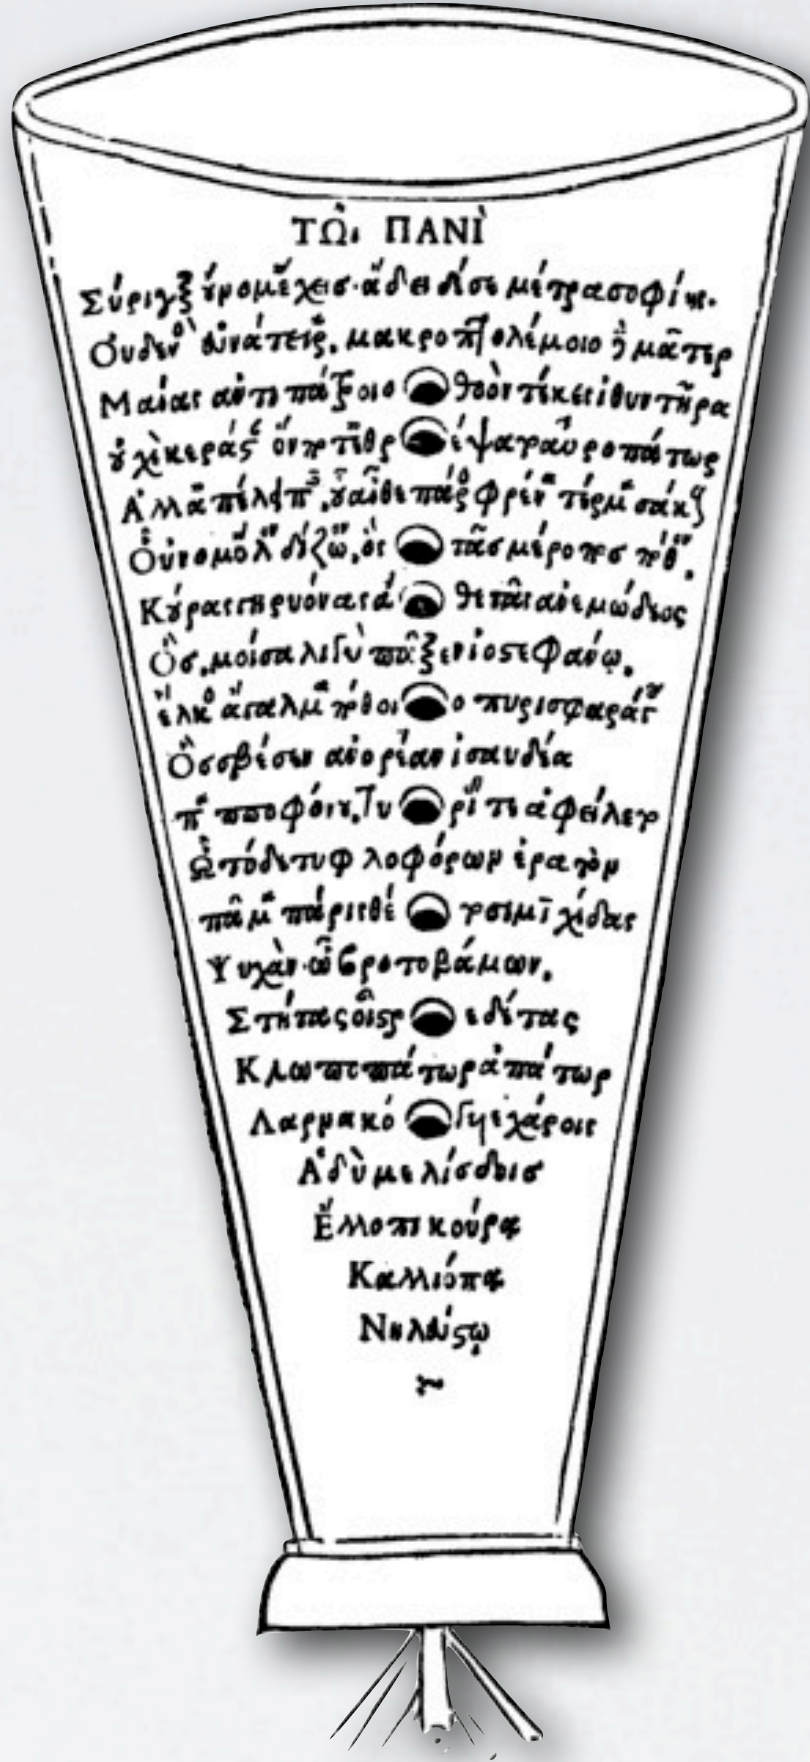 ΤΩ͂ι ΠΑΝΙ
Σύριγξ οὔνομ' ἔχεις· ᾄδει δέ σε μέτρα σοφίης.
Οὐδενὸς εὐνάτειρα, μακροπτολέμοιο δὲ μᾶτερ
Μαίας ἀντιπάτροιο θοὸν τέκες ἰθυντῆρα
οὐχὶ κεράσταν ὅν ποτε θρέψατο ταυροπάτωρ
Ἀλλ' πάρος φρένα τέρμα σάκους
Οὔνομ' ὅλον δίζωον, ὃς τᾶς μέροπος πόθον.
Κούρας γηρυόνας θε τᾶς ἀνεμώδεος
Ὃς μοίσᾳ λιγὺ πᾶξεν ἰοστεφάνῳ.
ἕλκος ἄγαλμα πόθοιο πυρισφαράγου
Ὃς σβέσεν ἀνορέαν ἰσαυδέα
παπποφόνου, Τυρίας τε ἀφείλετο
Ὧ τόδε τυφλοφόρων ἐρατὸν
πᾶμα πάρις θέτο σιμιχίδας
Ψυχὰν ᾧ βροτοβάμων.
Στήτας οἶστρε
Κλωποπάτωρ ἀπάτωρ
Λαρνακόγυιε χάροις
Ἁδὺ μελίσδοις
Ἔλλοπι κούρᾳ
Καλλιόπᾳ
Νηλεύστῳ